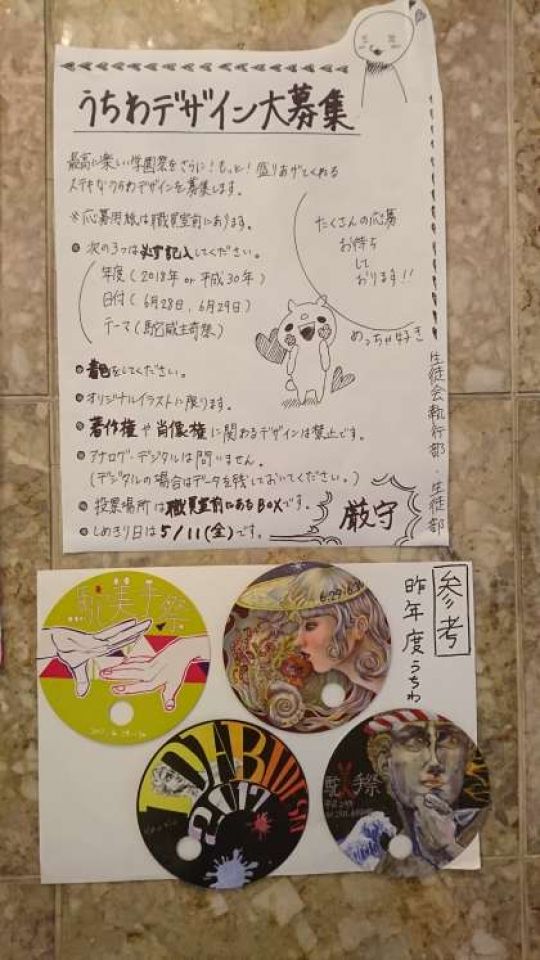 うちわデザイン大募集
最高に楽しい学園祭をさらに！もっと！盛りあげてくれる
ステキなうちわデザインを募集します。
※応募用紙は職員室前にあります。
たくさんの応募
お待ち
して
おります!!
次の3つは必ず記入してください。
年度(2018年 or 平成30年)
日付(6月28日、6月29日)
めっちゃ好き
着色をしてください。
オリジナルイラストに限ります。
著作権や肖像権に関わるデザインは禁止です。
アナログ・デジタルは問いません。
(デジタルの場合はデータを残しておいてください。)
投票場所は職員室前にあるBOXです。
しめきり日は5/11(金)です。
厳守
生徒会執行部・生徒部
参考
昨年度うちわ
美手祭
6.29
2017
手祭